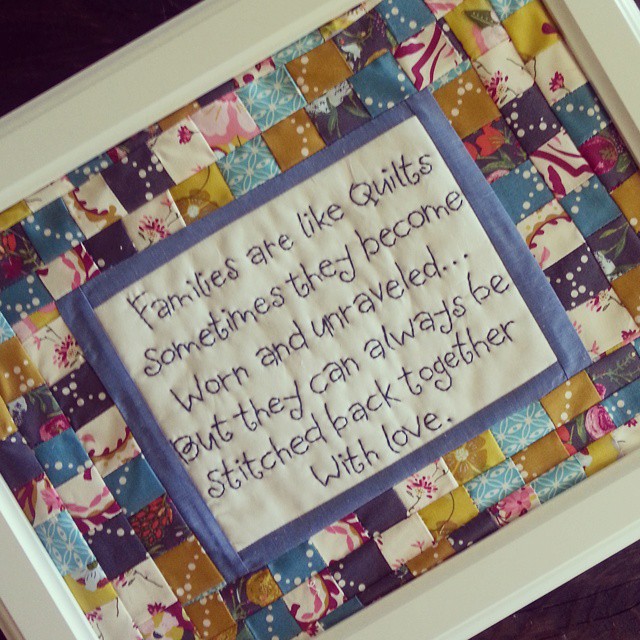 Families are like Quilts
sometimes they become
worn and unraveled...
But they can always be
stitched back together
with love.